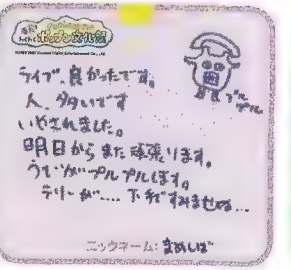 ポップン文化祭
ライブ、良かったです。
人、多いです
いやされました。
明日からまた頑張ります。
うでがプルプルします。
テリーが.... 下手ですみませぬ...
プル
プル
ニックネーム: まめしば